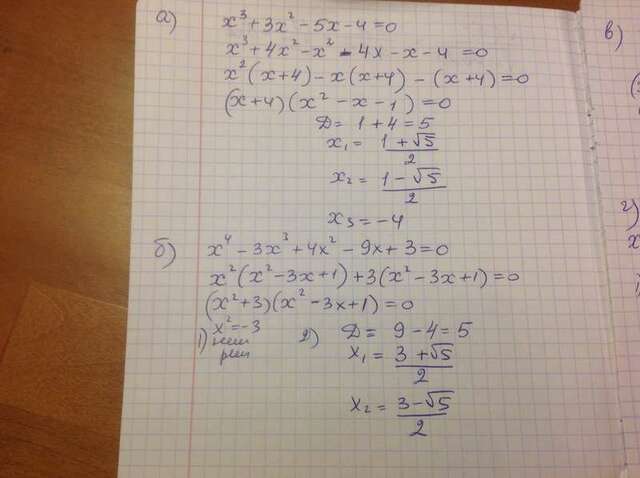 а) x³+3x²-5x-4=0
x³+4x²-x²-4x-x-4=0
x²(x+4)-x(x+4)-(x+4)=0
(x+4)(x²-x-1)=0
D=1+4=5
x₁=(1+√5)/2
x₂=(1-√5)/2
x₃=-4
б) x⁴-3x³+4x²-9x+3=0
x²(x²-3x+1)+3(x²-3x+1)=0
(x²+3)(x²-3x+1)=0
1) x²=-3 нет реш
2) D=9-4=5
x₁=(3+√5)/2
x₂=(3-√5)/2
в)
г)
x